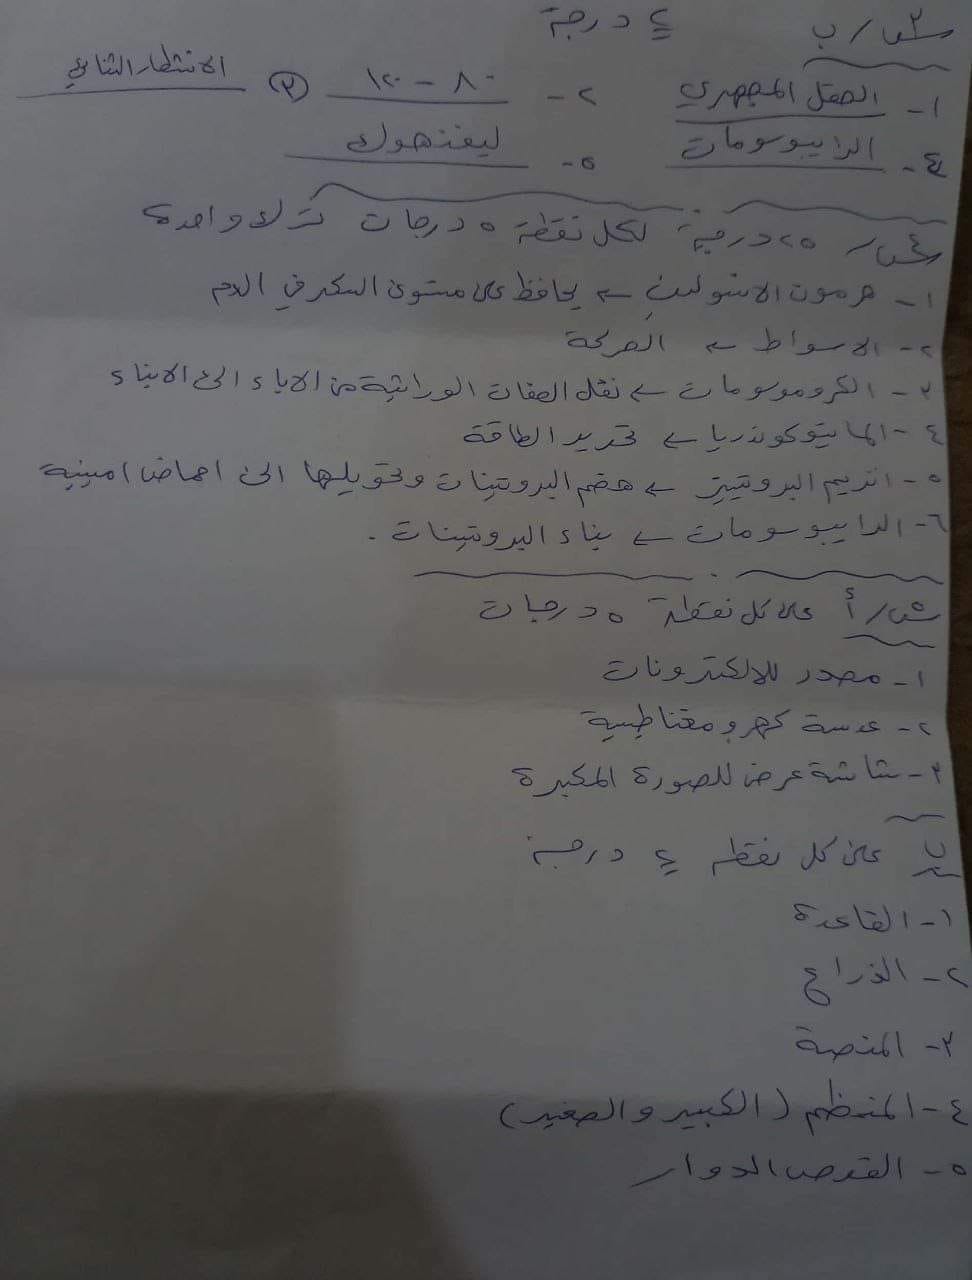 س٣/ ب ٤ درجة
١- الحقل المجهري ٢- ٨٠ - ١٢٠ ٣) الانشطار الثنائي
٤- الرايبوسومات ٥- ليفنهوك
س٤/ ٢٥ درجة لكل نقطة ٥ درجات ترك واحدة
١- هرمون الانسولين ← يحافظ على مستوى السكر في الدم
٢- الاسواط ← الحركة
٣- الكروموسومات ← نقل الصفات الوراثية من الاباء الى الابناء
٤- المايتوكوندريا ← تحرير الطاقة
٥- انزيم البروتييز ← هضم البروتينات وتحويلها الى احماض امينية
٦- الرايبوسومات ← بناء البروتينات .
س٥/ أ على كل نقطة ٥ درجات
١- مصدر للالكترونات
٢- عدسة كهرومغناطيسية
٣- شاشة عرض للصورة المكبرة
ب على كل نقطه ٤ درجة
١- القاعدة
٢- الذراع
٣- المنصة
٤- المنظم (الكبير والصغير)
٥- القرص الدوار